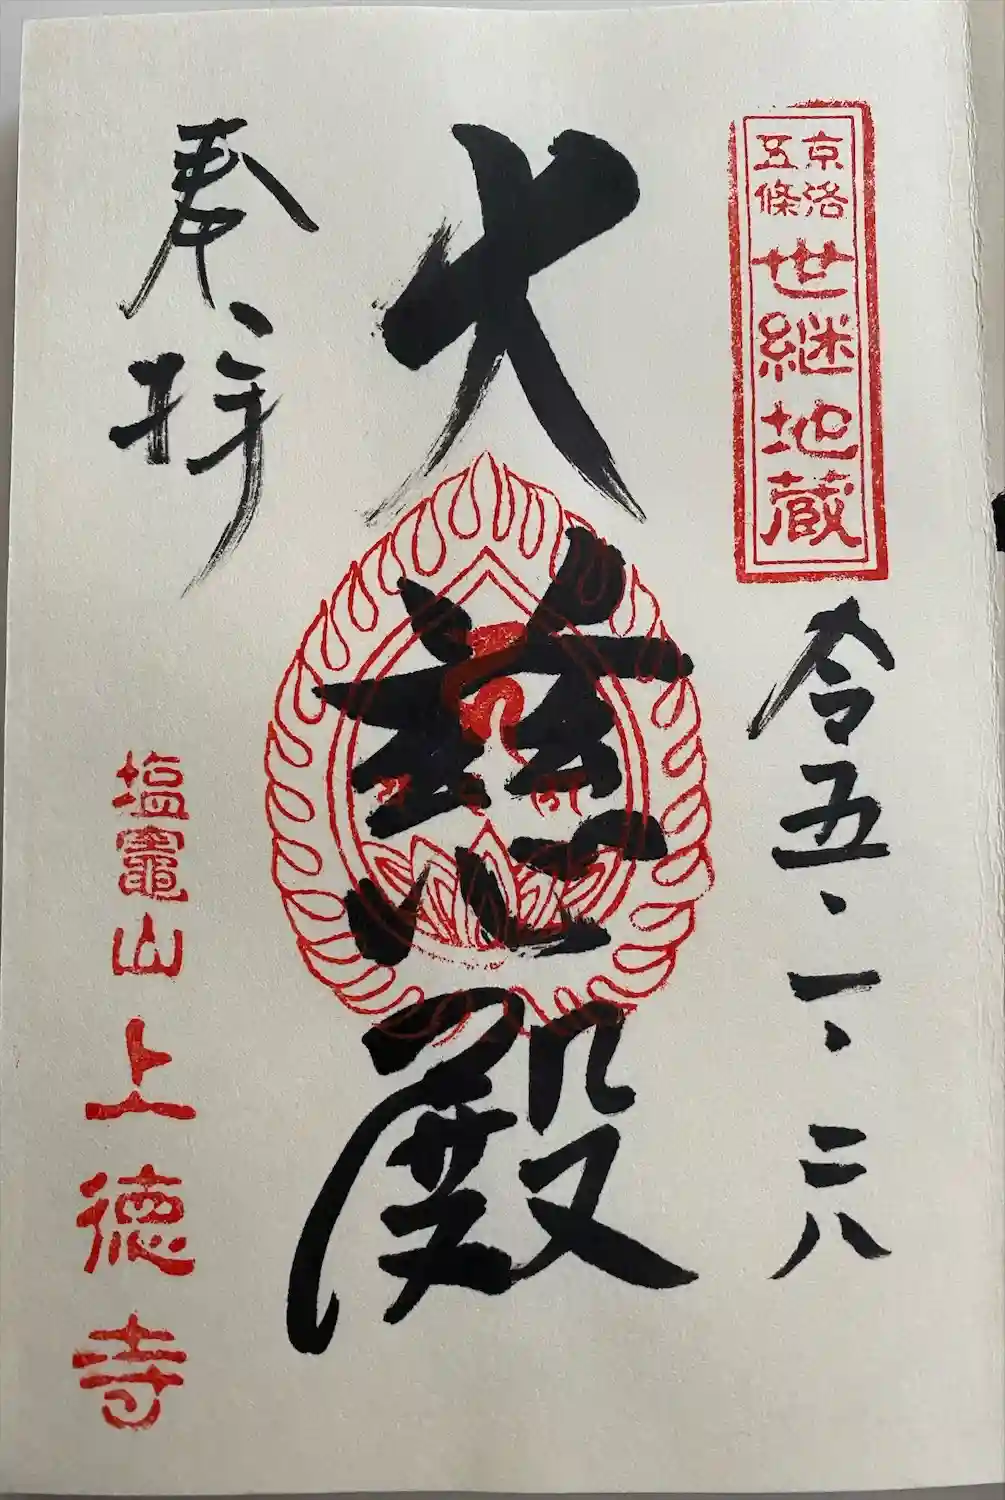 京洛
五條
世継地蔵
令五・一・二八
大慈殿
奉拝
塩竈山
上徳寺